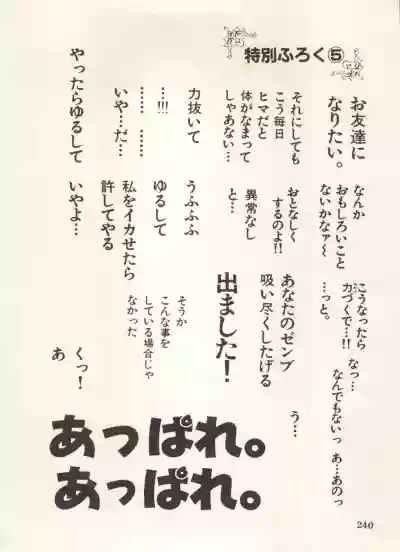 特別ふろく⑤
お友達に
なりたい。
それにしても
こう毎日
ヒマだと
体がなまって
しゃあない…
力抜いて
…!!!
……… ………
いや…だ…
やったらゆるして
なんか
おもしろいこと
ないかなァ〜
おとなしく
するのよ!!
異常なし
と…
うふふふ
ゆるして
私をイカせたら
許してやる
いやよ…
こうなったら
力づくで…!!
…っと。
あなたのゼンブ
吸い尽くしたげる
出ました!
そうか
こんな事を
している場合じゃ
なかった
くっ!
あ
なっ…
なんでもないっ あ…あのっ
う…
あっぱれ。
あっぱれ。
240